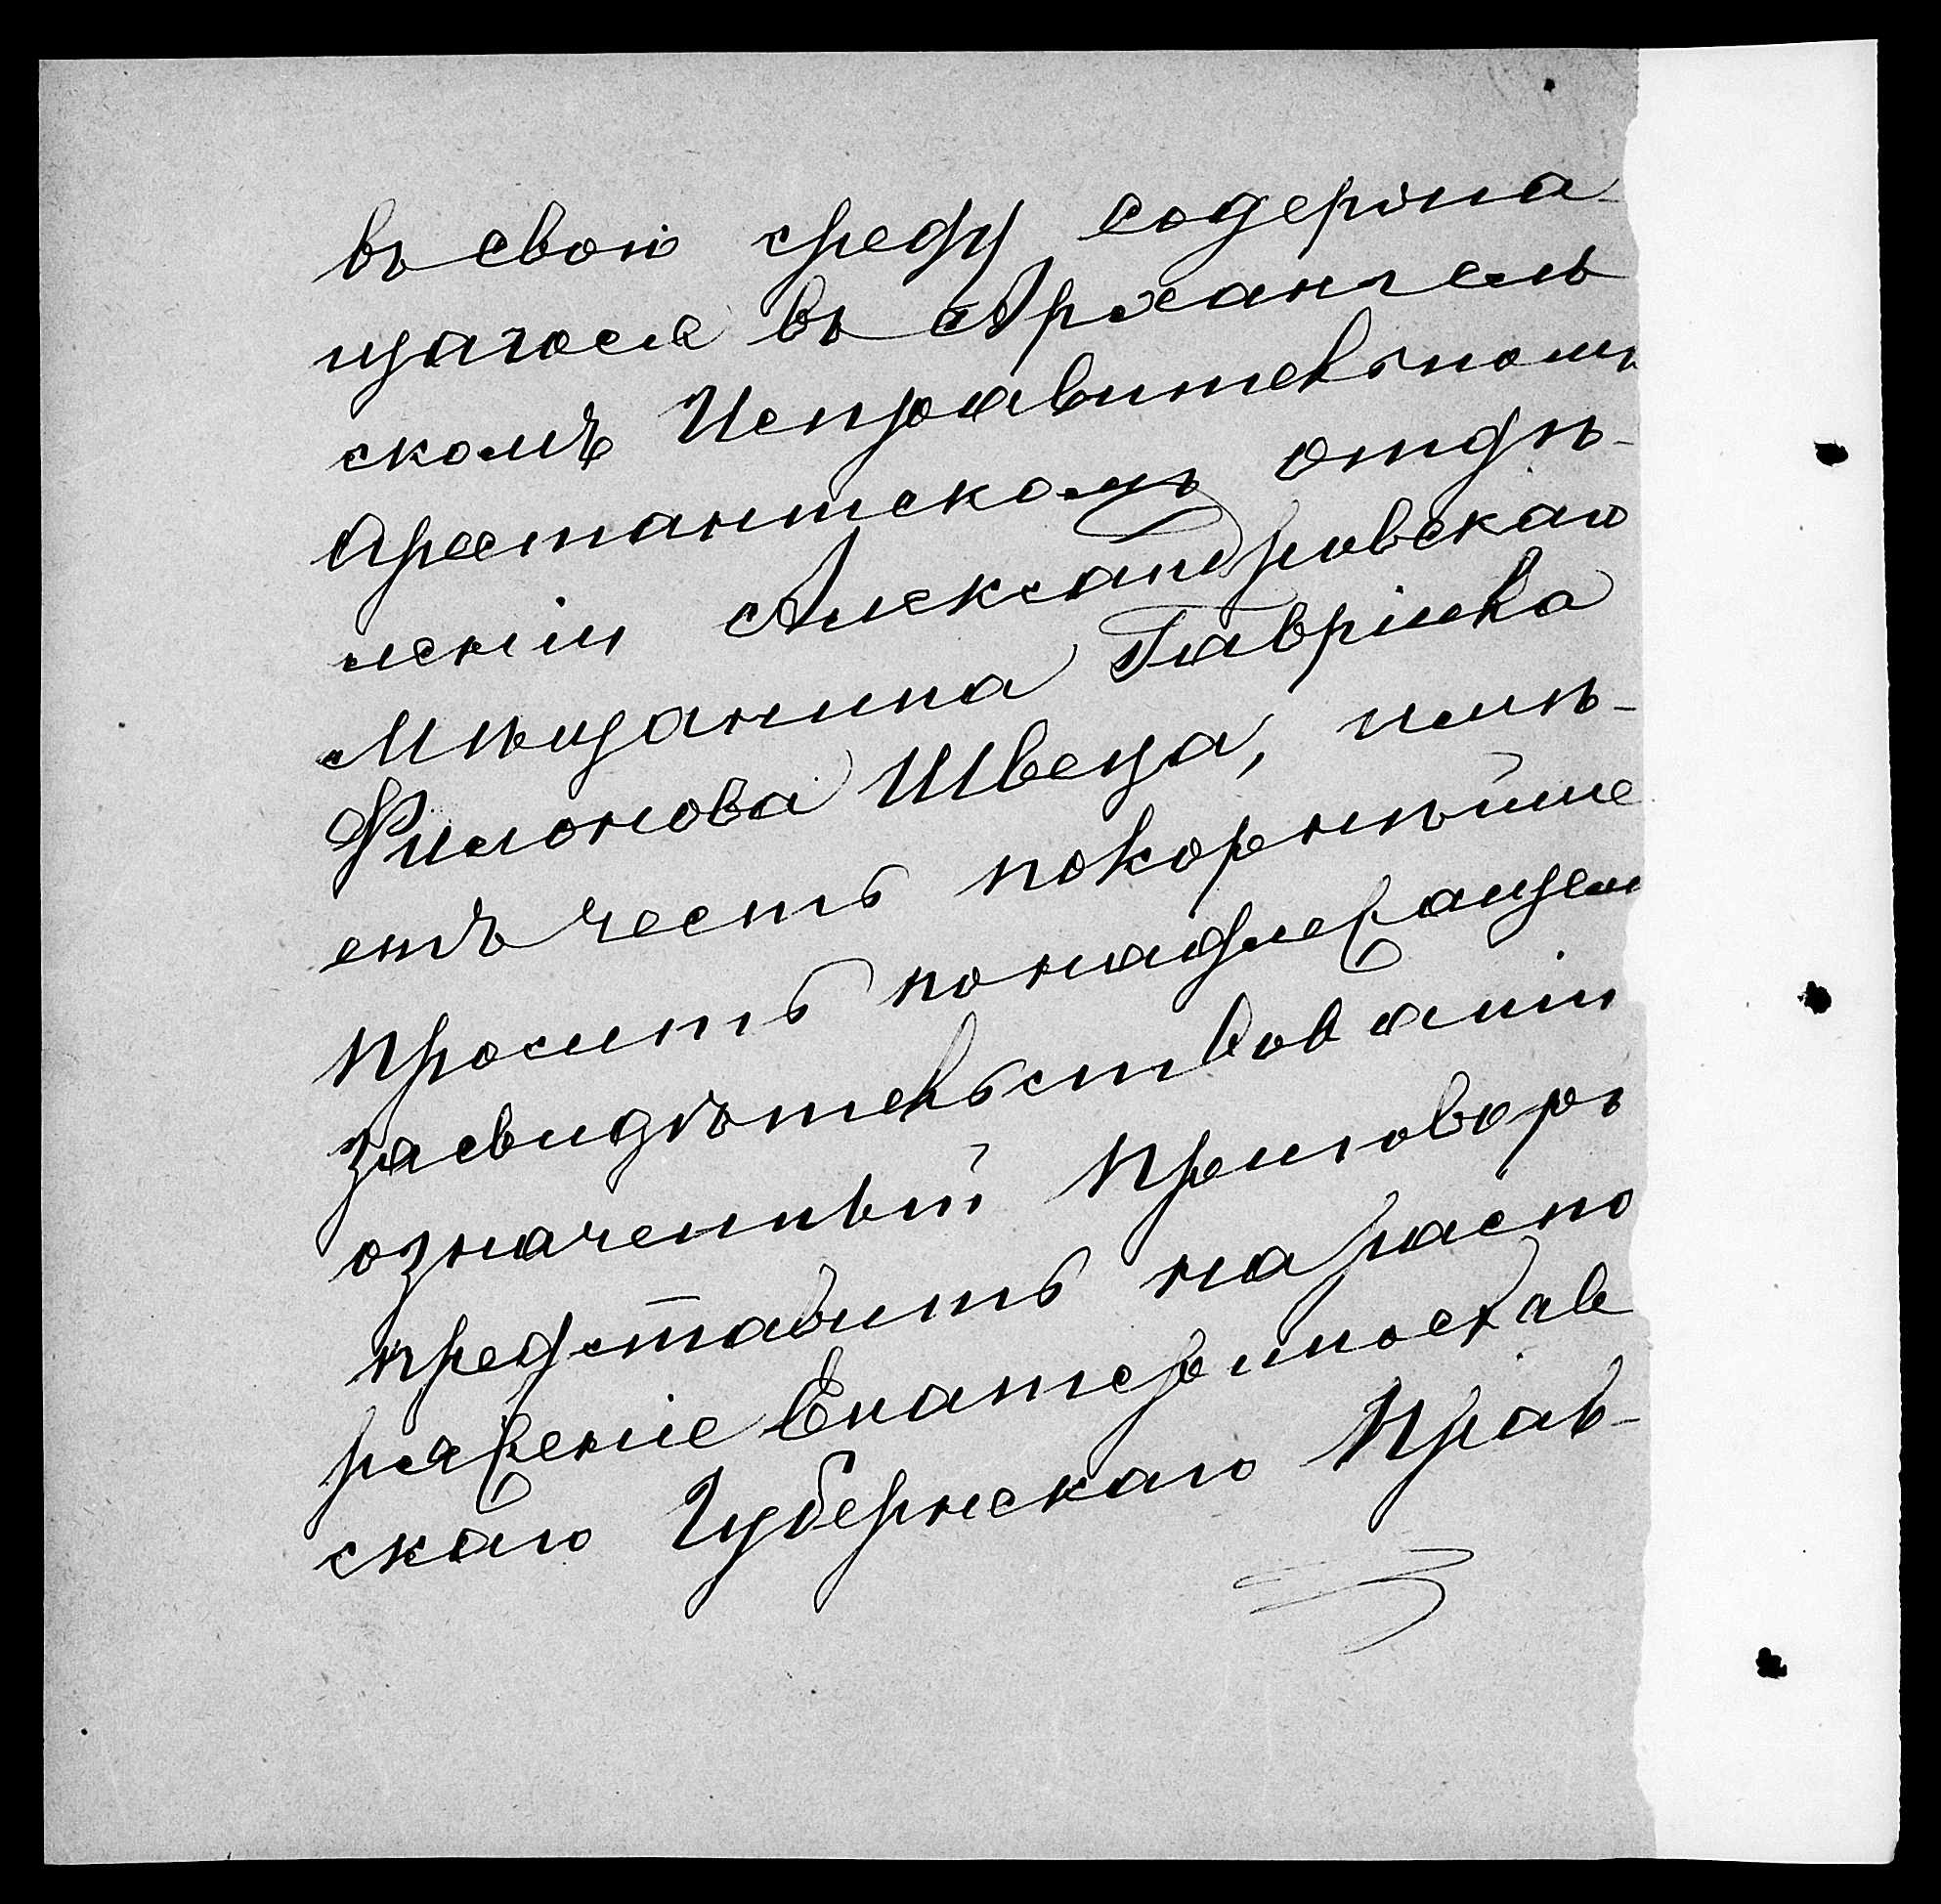 въ свою среду содержа-
щагося въ Архангель
скомъ Исправительномъ
Арестантскомъ отдѣ-
леніи Александровскаго
Мѣщанина Гавріила
Филонова Швеца, имѣ-
етъ честь покорнѣйше
просить по надлежащем
засвидѣтельствованіи
означенный приговоръ
представить на распо
ряженіе Екатеринослав
скаго Губернскаго Прав-